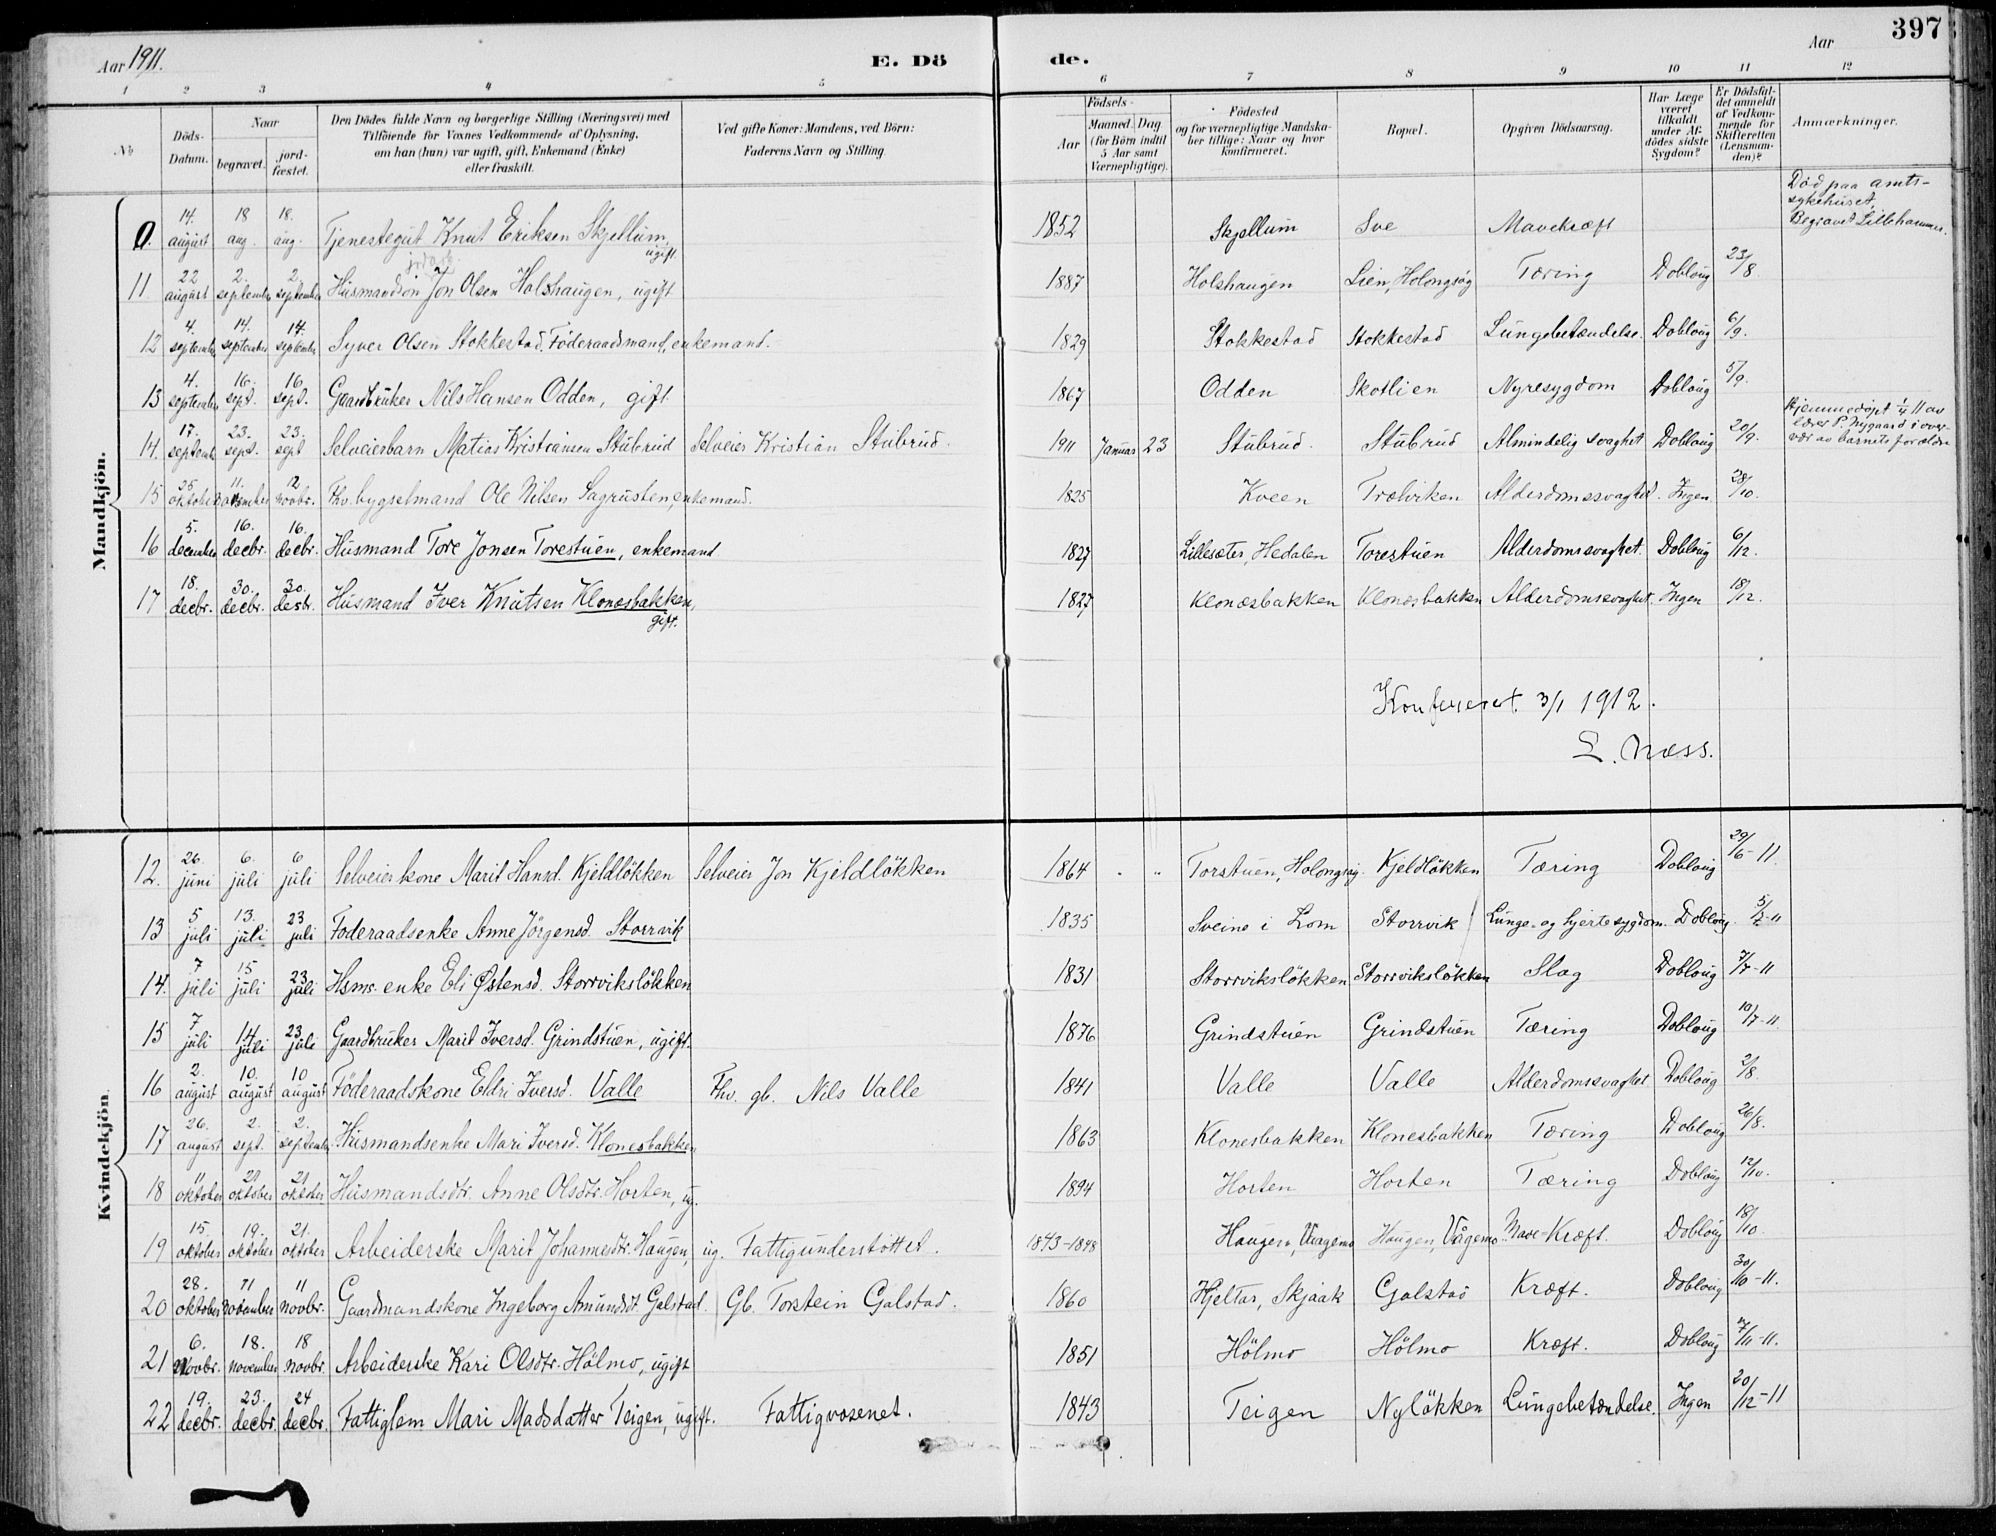 Aar 1911.
E. Döde.
Aar
397
1 2 3 4 5 6 7 8 9 10 11 12
No
Döds-Datum.
Naar
begravet.
jord-fæstet.
Den Dödes fulde Navn og borgerlige Stilling (Næringsvei) med
Tilföiende for Voxnes Vedkommende af Oplysning,
om han (hun) var ugift, gift, Enkemand (Enke)
eller fraskilt.
Ved gifte Koner: Mandens, ved Börn:
Faderens Navn og Stilling.
Födsels-
Aar
Maaned. Dag
(for Börn indtil
5 Aar samt
Værnepligtige).
Födested
og for værnepligtige Mandska-
ber tillige: Naar og hvor
konfirmeret.
Bopæl.
Opgiven Dödsaarsag.
Har Læge
været
tilkaldt
under Af-
dödes sidste
Sygdom?
Er Dödsfal-
det anmeldt
af Vedkom-
mende for
Skifteretten
(Lensman-
den)?
Anmærkninger.
Mandkjön.
0. 14. august 18 aug. 18. aug. Tjenestegut Knut Eriksen Skjellum, ugift 1852 Skjellum Sve Mavekræft Død paa amts-sykehuset, Begravet Lillehammer.
11 22 august 2. september 2. september Husmandsøn Jon Olsen Holshaugen, ugift 1887 Holshaugen Lien, Holongsøg Tæring Dobloug 23/8
12 4. september 14. september 14. september Syver Olsen Stokkestad. Föderaadsmand, enkemand. 1829 Stokkestad Stokkestad Lungebetændelse. Dobloug 6/9.
13 4. september 16. sept. 16. sept. Gaardbruker Nils Hansen Odden, gift 1867 Odden Skotlien Nyresygdom Dobloug 5/9.
14. 17. septemb. 23. sept. 23. sept Selveierbarn Matias Kristiansen Stubrud Selveier Kristian Stubrud. 1911 Januar 23 Stubrud. Stubrud Almindelig svaghet Dobloug 20/9. Hjemmedøpt 1/4 11 av lærer P. Nygaard i over-vær av barnets forældre
15 25 oktober 11. november 12 novbr. Fhv. bygselmand Ole Nilsen Sagrusten, enkemand. 1825 Kveen Trælviken Alderdomssvaghet. Ingen 28/10.
16 5. december 16. decbr. 16. decbr. Husmand Tore Jonsen Torestuen, enkemand 1827 Lillesæter, Hedalen Torestuen Alderdomssvaghet. Dobloug 6/12.
17 18. decbr. 30. decbr. 30. decbr. Husmand Iver Knutsen Klonesbakken, gift. 1827 Klonæsbakken Klonesbakken Alderdomssvaghet. Ingen 18/12.
Konfereret 3/1 1912.
L. Næss.
Kvindekjön.
12. 26. juni 6. juli 6 juli Selveierkone Marit Hansd. Kjeldlökken Selveier Jon Kjeldlökken 1864 Torstuen, Holongsøg. Kjeldlökken Tæring Dobloug 29/6-11.
13 5 juli 13. juli 23 juli Föderaadsenke Anne Jörgensd. Storrvik 1835 Sveine i Lom Storrvik Lunge- og hjertesygdom. Dobloug. 5/7-11
14. 7 juli 15 juli 23 juli Hsms. enke Eli Østensd. Storrvikslökken 1831 Storrvikslökken Storrvikslökken Slag Dobloug 7/7-11
15 7. juli 14. juli 23. juli Gaardbruker Marit Iversd. Grindstuen, ugift. 1876 Grindstuen Grindstuen Tæring Dobloug 10/7-11.
16 2. august 10. august 10 august Föderaadskone Eldri Iversd. Valle Fhv. gb. Nils Valle 1841 Valle Valle Alderdomssvaghet Dobloug 2/8.
17 26. august 2. sept. 2. september Husmandsenke Mari Iversd. Klonesbakken 1863 Klonesbakken Klonesbakken Tæring Dobloug 26/8.
18 11 oktober 21 oktober 21 oktober Husmandsdtr. Anne Olsdtr. Horten, ug. 1894 Horten Horten Tæring Dobloug 12/10.
19 15. oktober 19. oktober 21. oktober Arbeiderske Marit Johannesdtr. Haugen, ug. Fattigunderstöttet. 1843-1848 Haugen, Vaagemo Haugen, Vågemo Mave-Kræft. Dobloug 18/10
20 28. oktober 11 november 11 novbr. Gaardmandskone Ingeborg Amundsdt. Galstad. Gb. Torstein Galstad. 1860 Hjeltar, Skjaak Galstad Kræft. Dobloug 30/10-11.
21 6. Novbr. 18. november 18 novbr. Arbeiderske Kari Olsdtr. Hölmo, ugift 1851 Hölmo Hölmo Kræft. Dobloug 7/11-11.
22 19. decbr. 23. decbr. 24 decbr. Fattiglem Mari Madsdatter Teigen, ugift. Fattigvæsenet. 1843 Teigen Nylökken Lungebetændelse. Ingen 20/12-11